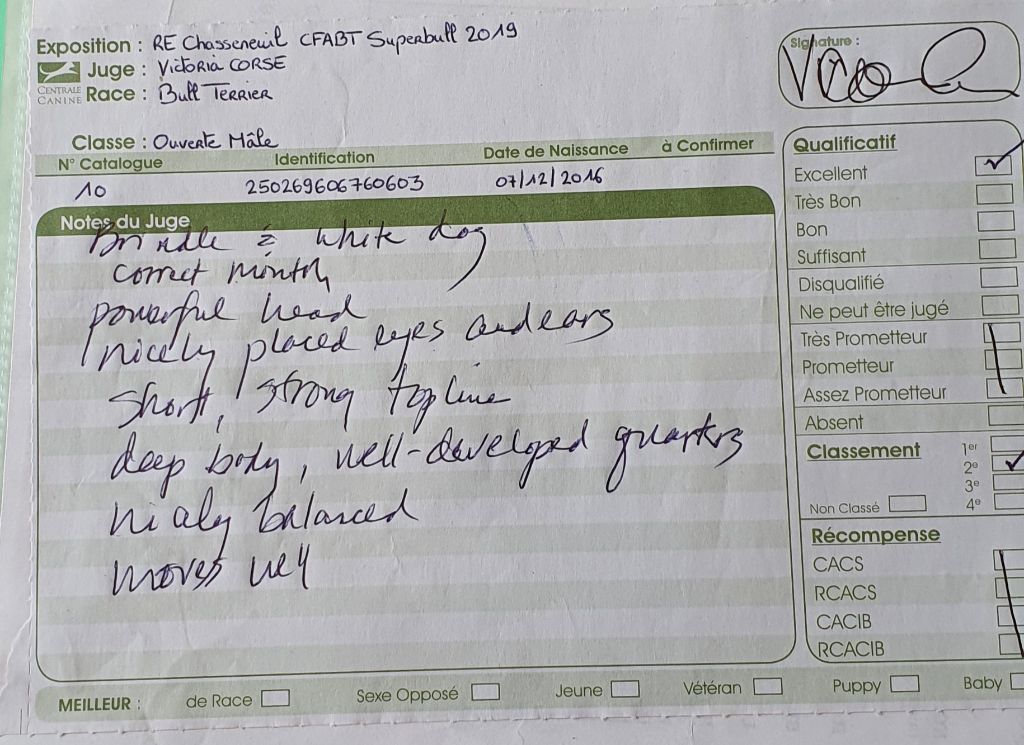 Exposition : RE Chasseneuil CFABT Superbull 2019
Juge : Victoria CORSE
CENTRALE CANINE
Race : Bull TERRIER
Signature :
Classe : Ouverte Mâle
N° Catalogue Identification Date de Naissance à Confirmer
10 250269606760603 07/12/2016
Notes du Juge
Brindle & white dog
correct mouth
powerful head
nicely placed eyes and ears
short, strong topline
deep body, well-developed quarters
nicely balanced
moves well
Qualificatif
Excellent
Très Bon
Bon
Suffisant
Disqualifié
Ne peut être jugé
Très Prometteur
Prometteur
Assez Prometteur
Absent
Classement 1er
2e
3e
Non Classé 4e
Récompense
CACS
RCACS
CACIB
RCACIB
MEILLEUR : de Race Sexe Opposé Jeune Vétéran Puppy Baby